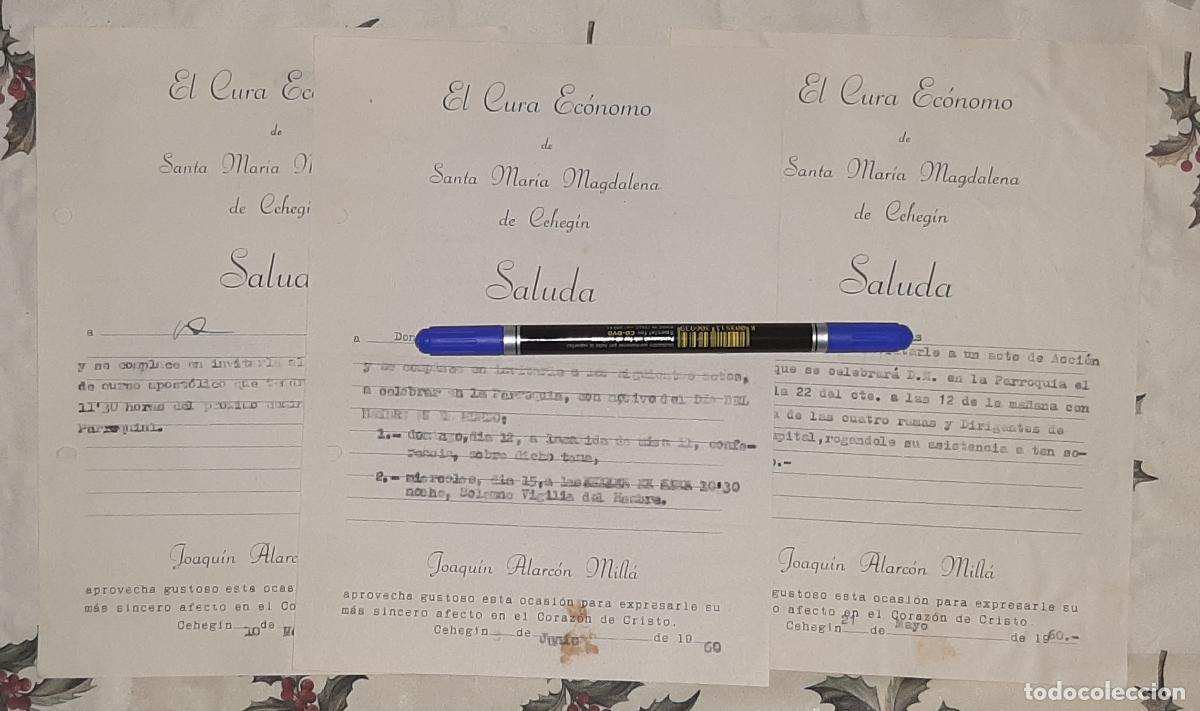 El Cura Ec
de
Santa María M
de Cehegi
Salud
a
y se complace en invitarle al
de curso apostólico que
11'30 horas del próximo
Parroquial.
Joaquín Alarc
aprovecha gustoso esta ocas
más sincero afecto en el Co
Cehegín 10 de
El Cura Ecónomo
de
Santa María Magdalena
de Cehegín
Saluda
a Don
y se complace en invitarle a los siguientes actos,
a celebrar en la Parroquia, con motivo del DIA DEL
1.- domingo, dia 12, a la de misa 11, confe-
rencia, sobre dicho tema,
2.- miercoles, dia 15, a las 10'30
noche, Solemne Vigilia del Hambre.
Joaquín Alarcón Millá
aprovecha gustoso esta ocasión para expresarle su
más sincero afecto en el Corazón de Cristo.
Cehegín de Junio de 1960
CD-DVD
El Cura Ecónomo
de
Santa María Magdalena
de Cehegín
Saluda
s
tarle a un acto de Acción
que se celebrará D.M. en la Parroquia el
ía 22 del cte. a las 12 de la mañana con
a de las cuatro ramas y Dirigentes de
apital, rogandole su asistencia a tan so-
.-
Joaquín Alarcón Millá
gustoso esta ocasión para expresarle su
o afecto en el Corazón de Cristo.
Cehegín 21 de Mayo de 1960.-
todocoleccion